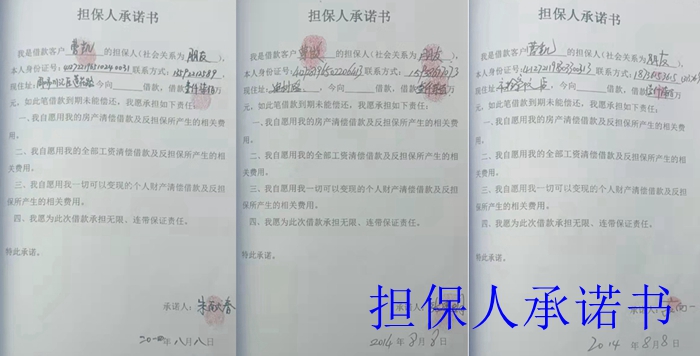 担保人承诺书
我是借款客户曹凯的担保人(社会关系为朋友),
本人身份证号: 联系方式:
现住址: 今向 借款,借款 万
元,如此笔借款到期未能偿还,我愿承担如下责任:
一、我自愿用我的房产清偿借款及反担保所产生的相关
费用。
二、我自愿用我的全部工资清偿借款及反担保所产生的
相关费用。
三、我自愿用我一切可以变现的个人财产清偿借款及反担
保所产生的相关费用。
四、我愿为此次借款承担无限、连带保证责任。
特此承诺。
承诺人:
年八月八日
担保人承诺书
我是借款客户 的担保人(社会关系为朋友),
本人身份证号: 联系方式:
现住址: ,今向 借款,借款 万
元,如此笔借款到期未能偿还,我愿承担如下责任:
一、我自愿用我的房产清偿借款及反担保所产生的相关
费用。
二、我自愿用我的全部工资清偿借款及反担保所产生的
相关费用。
三、我自愿用我一切可以变现的个人财产清偿借款及反担
保所产生的相关费用。
四、我愿为此次借款承担无限、连带保证责任。
特此承诺。
承诺人:
2014年8月8日
担保人承诺书
我是借款客户曹凯的担保人(社会关系为朋友),
本人身份证号: 联系方式:
现住址: ,今向 借款,借款 万
元,如此笔借款到期未能偿还,我愿承担如下责任:
一、我自愿用我的房产清偿借款及反担保所产生的相关
费用。
二、我自愿用我的全部工资清偿借款及反担保所产生的
相关费用。
三、我自愿用我一切可以变现的个人财产清偿借款及反担
保所产生的相关费用。
四、我愿为此次借款承担无限、连带保证责任。
特此承诺。
承诺人:
2014年8月8日
担保人承诺书